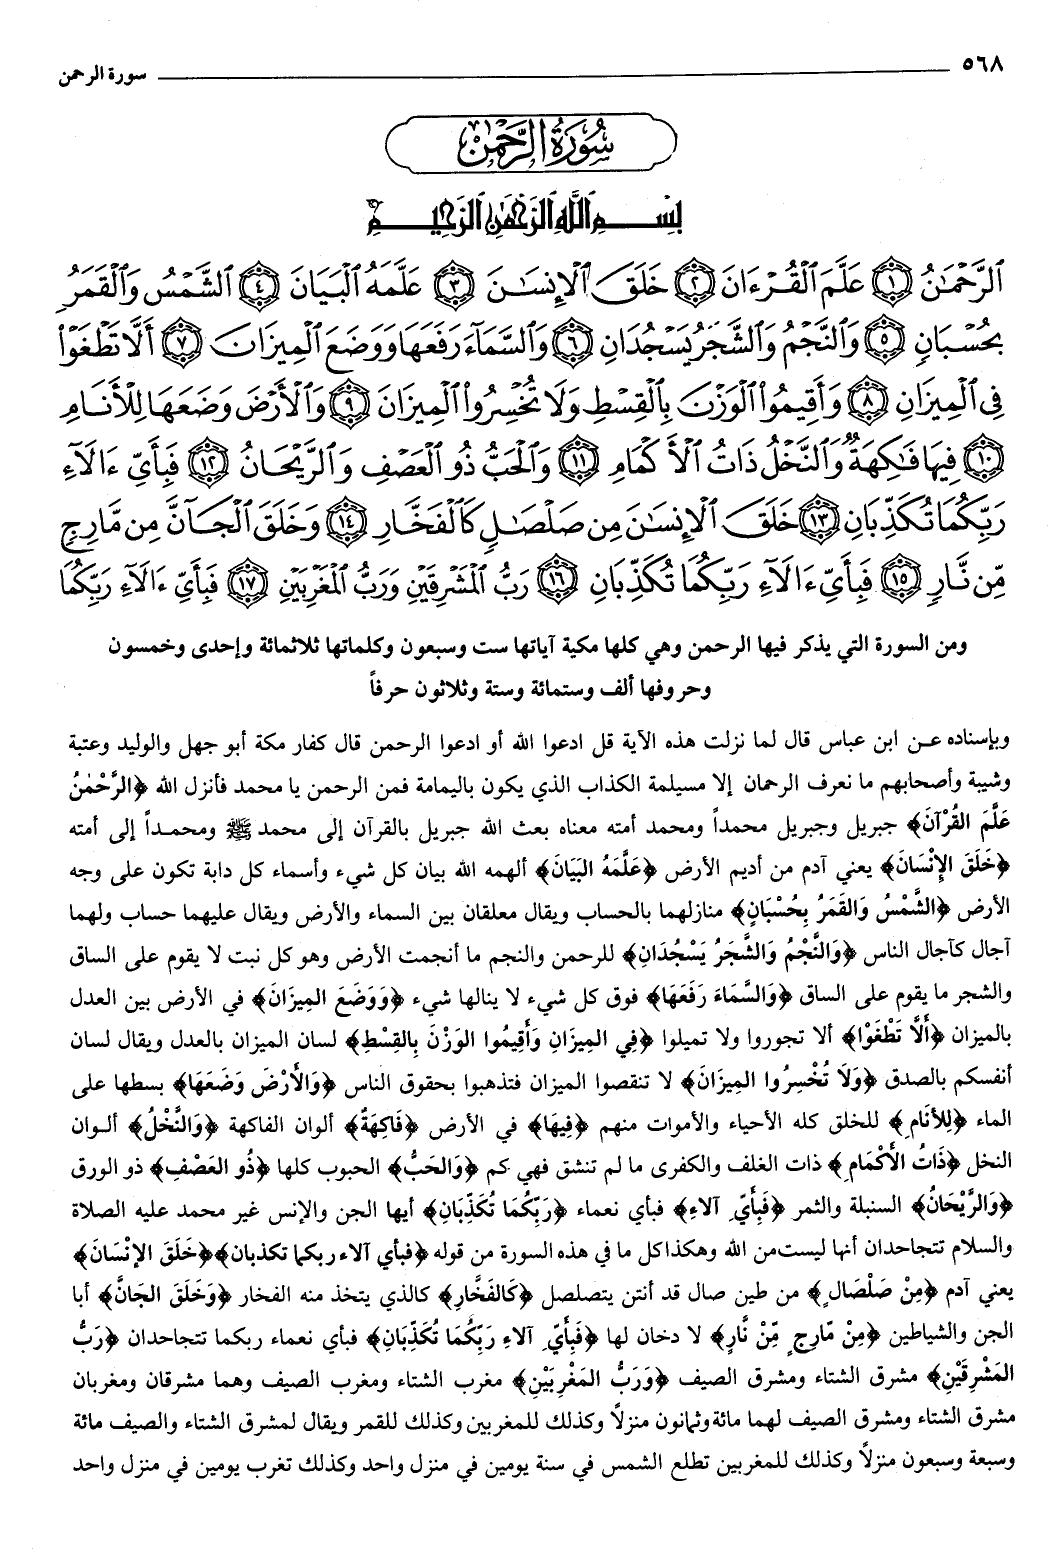 ٥٦٨ سورة الرحمن
سُورَةُ الرَّحْمٰن
بِسْمِ اللَّهِ الرَّحْمٰنِ الرَّحِيمِ
الرَّحْمَٰنُ ﴿١﴾ عَلَّمَ الْقُرْءَانَ ﴿٢﴾ خَلَقَ الْإِنسَٰنَ ﴿٣﴾ عَلَّمَهُ الْبَيَانَ ﴿٤﴾ الشَّمْسُ وَالْقَمَرُ
بِحُسْبَانٍ ﴿٥﴾ وَالنَّجْمُ وَالشَّجَرُ يَسْجُدَانِ ﴿٦﴾ وَالسَّمَآءَ رَفَعَهَا وَوَضَعَ الْمِيزَانَ ﴿٧﴾ أَلَّا تَطْغَوْا۟
فِى الْمِيزَانِ ﴿٨﴾ وَأَقِيمُوا۟ الْوَزْنَ بِالْقِسْطِ وَلَا تُخْسِرُوا۟ الْمِيزَانَ ﴿٩﴾ وَالْأَرْضَ وَضَعَهَا لِلْأَنَامِ
﴿١٠﴾ فِيهَا فَٰكِهَةٌ وَالنَّخْلُ ذَاتُ الْأَكْمَامِ ﴿١١﴾ وَالْحَبُّ ذُو الْعَصْفِ وَالرَّيْحَانُ ﴿١٢﴾ فَبِأَىِّ ءَالَآءِ
رَبِّكُمَا تُكَذِّبَانِ ﴿١٣﴾ خَلَقَ الْإِنسَٰنَ مِن صَلْصَٰلٍ كَالْفَخَّارِ ﴿١٤﴾ وَخَلَقَ الْجَآنَّ مِن مَّارِجٍ
مِّن نَّارٍ ﴿١٥﴾ فَبِأَىِّ ءَالَآءِ رَبِّكُمَا تُكَذِّبَانِ ﴿١٦﴾ رَبُّ الْمَشْرِقَيْنِ وَرَبُّ الْمَغْرِبَيْنِ ﴿١٧﴾ فَبِأَىِّ ءَالَآءِ رَبِّكُمَا
ومن السورة التي يذكر فيها الرحمن وهي كلها مكية آياتها ست وسبعون وكلماتها ثلاثمائة وإحدى وخمسون
وحروفها ألف وستمائة وستة وثلاثون حرفاً
وبإسناده عـن ابن عباس قال لما نزلت هذه الآية قل ادعوا الله أو ادعوا الرحمن قال كفار مكة أبو جهل والوليد وعتبة
وشيبة وأصحابهم ما نعرف الرحمان إلا مسيلمة الكذاب الذي يكون باليمامة فمن الرحمن يا محمد فأنزل الله ﴿الرَّحْمٰنُ
عَلَّمَ القُرْآنَ﴾ جبريل وجبريل محمداً ومحمد أمته معناه بعث الله جبريل بالقرآن إلى محمد ﷺ ومحمـداً إلى أمته
﴿خَلَقَ الإِنْسَانَ﴾ يعني آدم من أديم الأرض ﴿عَلَّمَهُ البَيَانَ﴾ ألهمه الله بيان كل شيء وأسماء كل دابة تكون على وجه
الأرض ﴿الشَّمْسُ وَالقَمَرُ بِحُسْبَانٍ﴾ منازلهما بالحساب ويقال معلقان بين السماء والأرض ويقال عليهما حساب ولهما
آجال كآجال الناس ﴿وَالنَّجْمُ وَالشَّجَرُ يَسْجُدَانِ﴾ للرحمن والنجم ما أنجمت الأرض وهو كل نبت لا يقوم على الساق
والشجر ما يقوم على الساق ﴿وَالسَّمَاءَ رَفَعَهَا﴾ فوق كل شيء لا ينالها شيء ﴿وَوَضَعَ المِيزَانَ﴾ في الأرض بين العدل
بالميزان ﴿أَلَّا تَطْغَوْا﴾ ألا تجوروا ولا تميلوا ﴿فِي المِيزَانِ وَأَقِيمُوا الوَزْنَ بِالقِسْطِ﴾ لسان الميزان بالعدل ويقال لسان
أنفسكم بالصدق ﴿وَلَا تُخْسِرُوا المِيزَانَ﴾ لا تنقصوا الميزان فتذهبوا بحقوق الناس ﴿وَالأَرْضَ وَضَعَهَا﴾ بسطها على
الماء ﴿لِلأَنَامِ﴾ للخلق كله الأحياء والأموات منهم ﴿فِيهَا﴾ في الأرض ﴿فَاكِهَةٌ﴾ ألوان الفاكهة ﴿وَالنَّخْلُ﴾ ألـوان
النخل ﴿ذَاتُ الأَكْمَامِ﴾ ذات الغلف والكفرى ما لم تنشق فهي كم ﴿وَالحَبُّ﴾ الحبوب كلها ﴿ذُو العَصْفِ﴾ ذو الورق
﴿وَالرَّيْحَانُ﴾ السنبلة والثمر ﴿فَبِأَيِّ آلاءِ﴾ فبأي نعماء ﴿رَبِّكُمَا تُكَذِّبَانِ﴾ أيها الجن والإنس غير محمد عليه الصلاة
والسلام تتجاحدان أنها ليست من الله وهكذا كل ما في هذه السورة من قوله ﴿فبأي آلاء ربكما تكذبان﴾ ﴿خَلَقَ الإِنْسَانَ﴾
يعني آدم ﴿مِنْ صَلْصَالٍ﴾ من طين صال قد أنتن يتصلصل ﴿كَالفَخَّارِ﴾ كالذي يتخذ منه الفخار ﴿وَخَلَقَ الجَانَّ﴾ أبا
الجن والشياطين ﴿مِنْ مَّارِجٍ مِّنْ نَّارٍ﴾ لا دخان لها ﴿فَبِأَيِّ آلاءِ رَبِّكُمَا تُكَذِّبَانِ﴾ فبأي نعماء ربكما تتجاحدان ﴿رَبُّ
المَشْرِقَيْنِ﴾ مشرق الشتاء ومشرق الصيف ﴿وَرَبُّ المَغْرِبَيْنِ﴾ مغرب الشتاء ومغرب الصيف وهما مشرقان ومغربان
مشرق الشتاء ومشرق الصيف لهما مائة وثمانون منزلاً وكذلك للمغربين وكذلك للقمر ويقال لمشرق الشتاء والصيف مائة
وسبعة وسبعون منزلاً وكذلك للمغربين تطلع الشمس في سنة يومين في منزل واحد وكذلك تغرب يومين في منزل واحد